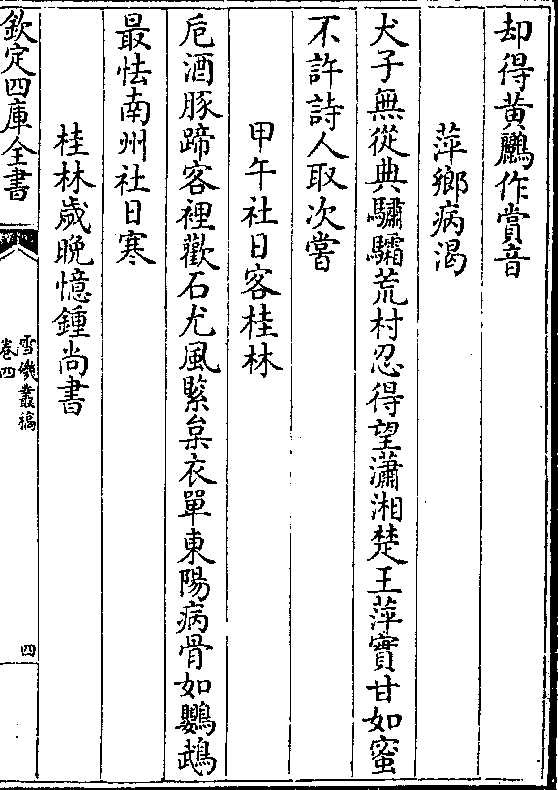 却得黄鸝作賞音
萍鄉病渴
犬子無從典驌驦荒村忍得望瀟湘楚王萍實甘如蜜
不許詩人取次嘗
甲午社日客桂林
卮酒豚蹄客裡歡石尤風緊枲衣單東陽病骨如鸚鵡
最怯南州社日寒
桂林歲晩憶鍾尚書
欽定四庫全書
雪磯叢稿
卷四
四